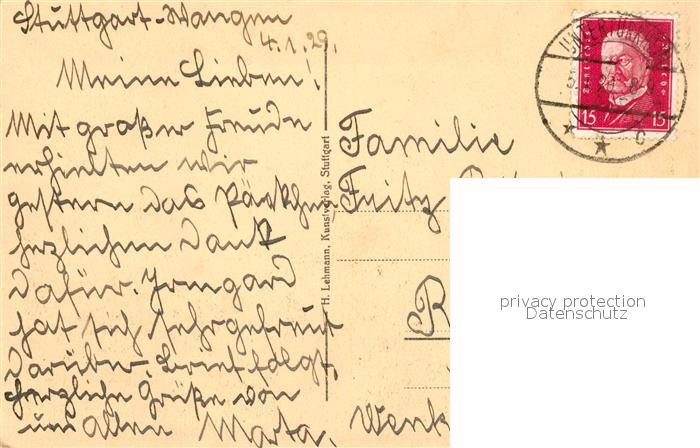 Stuttgart-Wangen
4.1.29.
Meine Lieben!
Mit großer Freude
erhielten wir
gestern das Päckchen
herzlichen Dank
dafür. Irmgard
hat sich sehr gefreut
darüber. Brief folgt.
Herzliche Grüße von
uns allen Marta.
H. Lehmann, Kunstverlag, Stuttgart
UNTERTÜRKHEIM
Deutsches Reich
15 15
C
Familie
Fritz
R
Wenk
privacy protection
Datenschutz